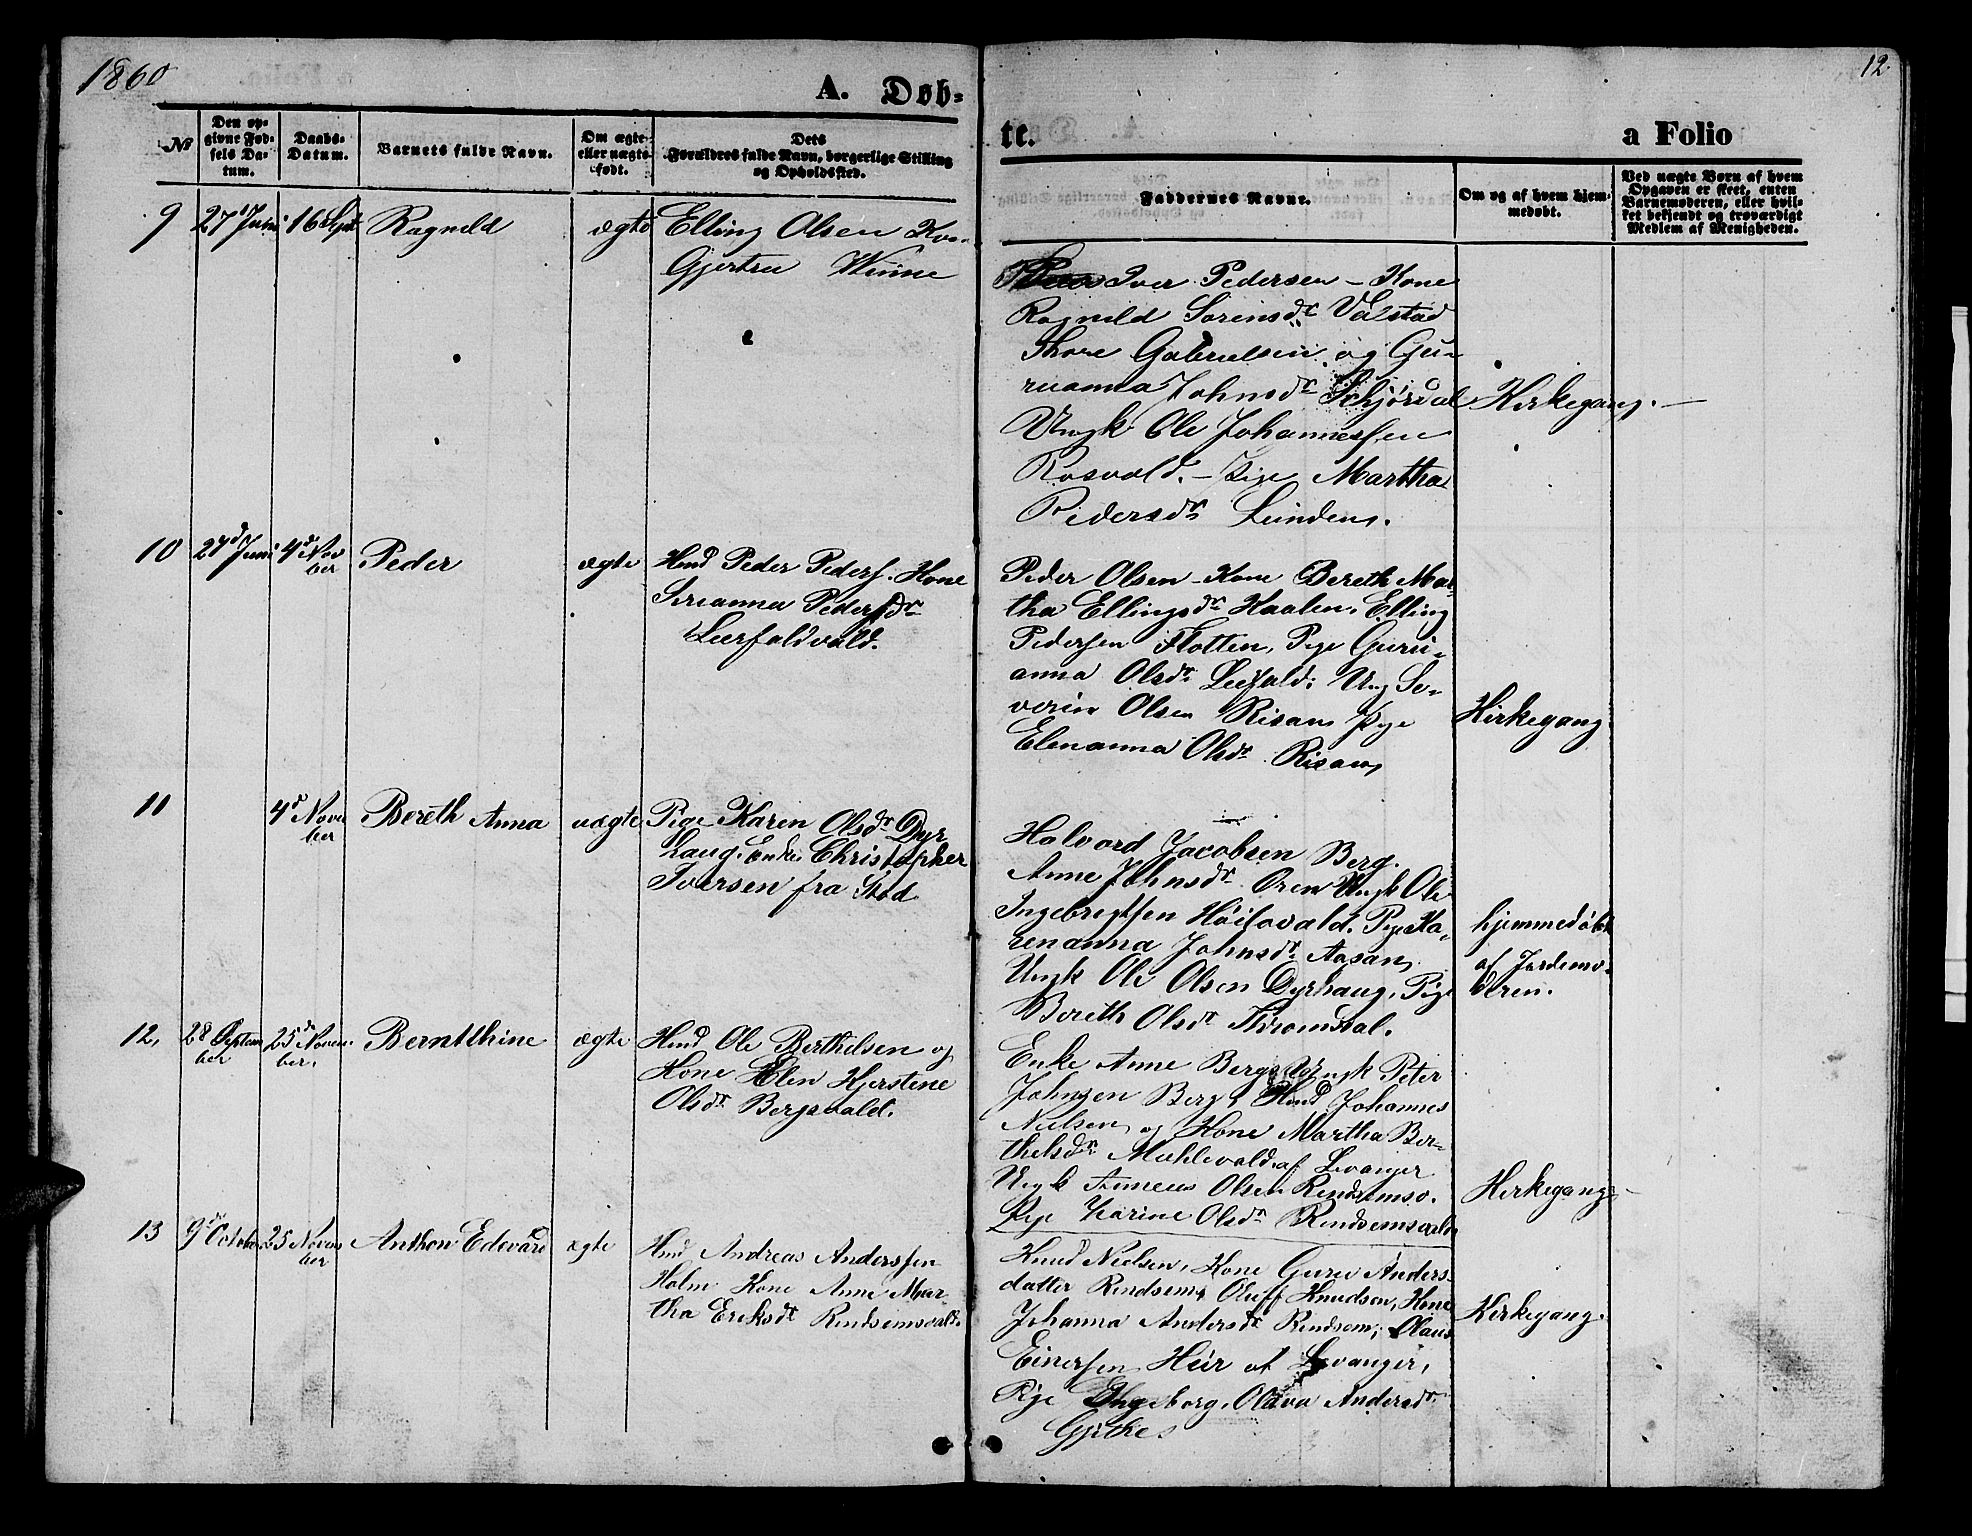 1860
A. Døb=
te.
a Folio
12
№
Den op=
givne Fød=
sels Da=
tum.
Daabs=
Datum.
Barnets fulde Navn.
Om ægte
eller uægte
født.
Dets
Forældres fulde Navn, borgerlige Stilling
og Opholdssted.
Faddernes Navne.
Om og af hvem hjem=
medøbt.
Ved uægte Børn af hvem
Opgaven er skeet, enten
Barnemoderen, eller hvil=
ket bekjendt og troværdigt
Medlem af Menigheden.
9 27d Juni 16 Sept Ragnild ægte Elling Olsen Ko=
Gjertru Winne
Iver Pedersen - Kone
Ragnild Sorensdr Valstad
Thore Gabrielsen og Gu=
ruanna Johnsdr Schjørdal
Kirkegang.
Ungk Ole Johannessen
Rosvold. - Pige Martha
Pedersdr Lunden.
10 27d Juni 4de Nov
ber
Peder ægte Hmd Peder Peders. Kone
Serianna Pedersdr
Leerfaldvald.
Peder Olsen - Kone Bereth Mar=
tha Ellingsdr Kaalen, Elling
Pedersen Flotten, Pige Guru=
anna Olsdr Leifald; Ung Se=
verin Olsen Risan, Pige
Elenanna Olsdr. Risan,
Kirkegang
11 4d Nove
ber
Bereth Anna uægte Pige Karen Olsdr Dyr
haug. Enke Christopher
Iversen fra Stod
Halvord Jacobsen Berg.
Anne Johnsdr. Oren Ungk Ole
Ingebregtsen Høilovald. Pige Ka=
renanna Johnsdr. Aasan,
Ungk Ole Olsen Dyrhaug, Pige
Bereth Olsdr Thromsdal.
hjemmedøbt
af Jordemo=
deren.
12. 28 Septem
ber
25de Novem
ber.
Berntthine ægte Hmd Ole Berthelsen og
Kone Elen Kjerstene
Olsdr Bergsvald.
Enke Anne Berg, Ungk Peter
Johnsen Berg, Hmd Johannes
Nielsen og Kone Martha Ber=
thelsdr Mæhlevald af Levanger
Ungk Anneus Olsen Rindsemso.
Pige Karine Olsdr Rindsemsvald
Kirkegang
13 9de October 25 Novem
ber
Anthon Edevard ægte Hmd Andreas Anderssen
Holm Kone Anne Mar=
tha Eriksdr Rindsemsvald.
Knud Nielsen, Kone Guru Anders=
datter Rindsem, Oluff Knudsen, Kone
Johanna Andersdr Rindsem; Olaus
Einersen Heir af Levanger,
Pige Ingeborg. Olava Andersdr
Gjethes
Kirkegang.